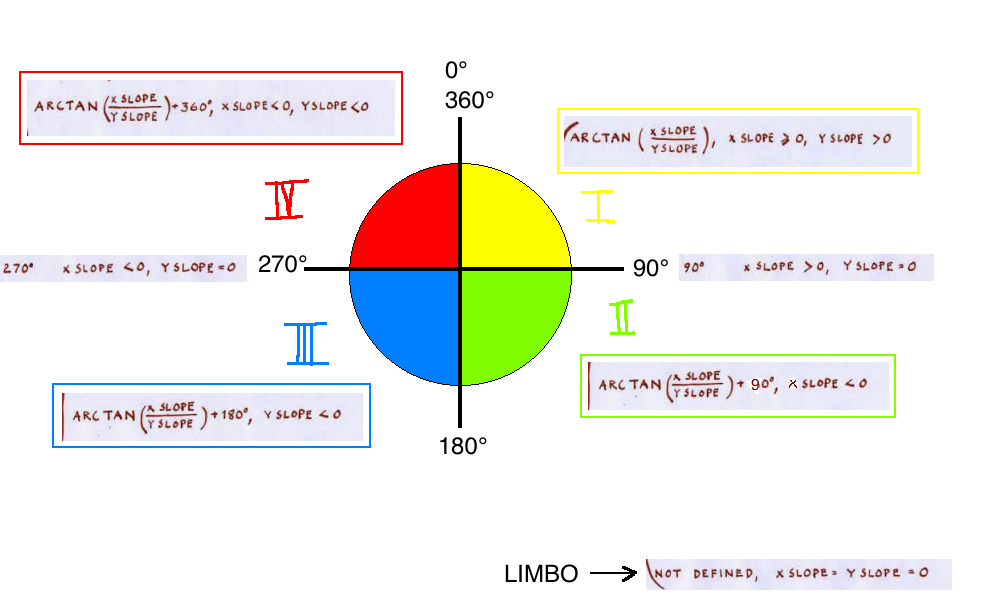 0°
360°
ARCTAN (X SLOPE / Y SLOPE) + 360°, X SLOPE < 0, Y SLOPE < 0
ARCTAN (X SLOPE / Y SLOPE), X SLOPE ⩾ 0, Y SLOPE > 0
IV
I
270° X SLOPE < 0, Y SLOPE = 0
270°
90°
90° X SLOPE > 0, Y SLOPE = 0
III
II
ARCTAN (X SLOPE / Y SLOPE) + 180°, Y SLOPE < 0
ARCTAN (X SLOPE / Y SLOPE) + 90°, X SLOPE < 0
180°
LIMBO → NOT DEFINED, X SLOPE = Y SLOPE = 0